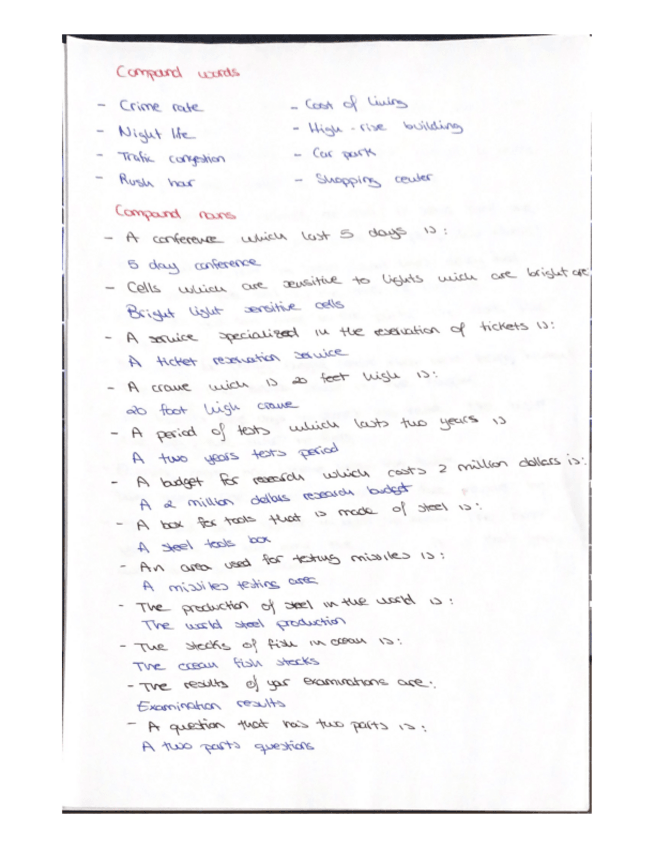 Compound words
- Crime rate
- Night life
- Trafic congestion
- Rush hour
- Cost of living
- High-rise building
- Car park
- Shopping center
Compound nouns
- A conference which last 5 days is:
5 day conference
- Cells which are sensitive to lights wich are bright are
Bright light sensitive cells
- A service specialized in the reservation of tickets is:
A ticket reservation service
- A crane wich is 20 feet high is:
20 foot high crane
- A period of tests which lasts two years is
A two years tests period
- A budget for research which costs 2 million dollars is:
A 2 million dollars research budget
- A box for tools that is made of steel is:
A steel tools box
- An area used for testing missiles is:
A missiles testing area
- The production of steel in the world is:
The world steel production
- The stocks of fish in ocean is:
The ocean fish stocks
- The results of your examinations are:
Examination results
- A question that has two parts is:
A two parts questions